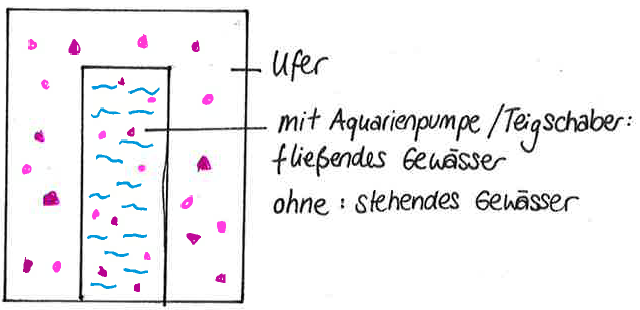 Ufer
mit Aquarienpumpe/Teigschaber:
fließendes Gewässer
ohne: stehendes Gewässer